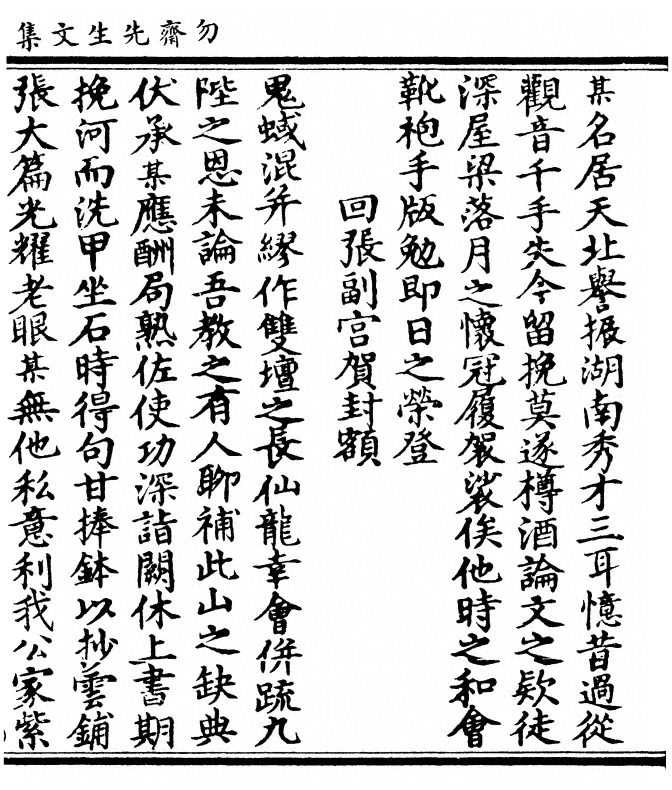 勿齋先生文集
某名居天北譽振湖南秀才三耳憶昔過從
觀音千手失今留挽莫遂樽酒論文之欵徒
深屋梁落月之懷冠履袈裟俟他時之和會
靴袍手版勉即日之榮登
回張副宮賀封額
鬼蜮混并繆作雙壇之長仙龍幸會併䟽九
陛之恩未論吾教之有人聊補此山之缺典
伏承某應酬局熟佐使功深詣闕休上書期
挽河而洗甲坐石時得句甘捧鉢以抄雲鋪
張大篇光耀老眼某無他私意利我公家紫